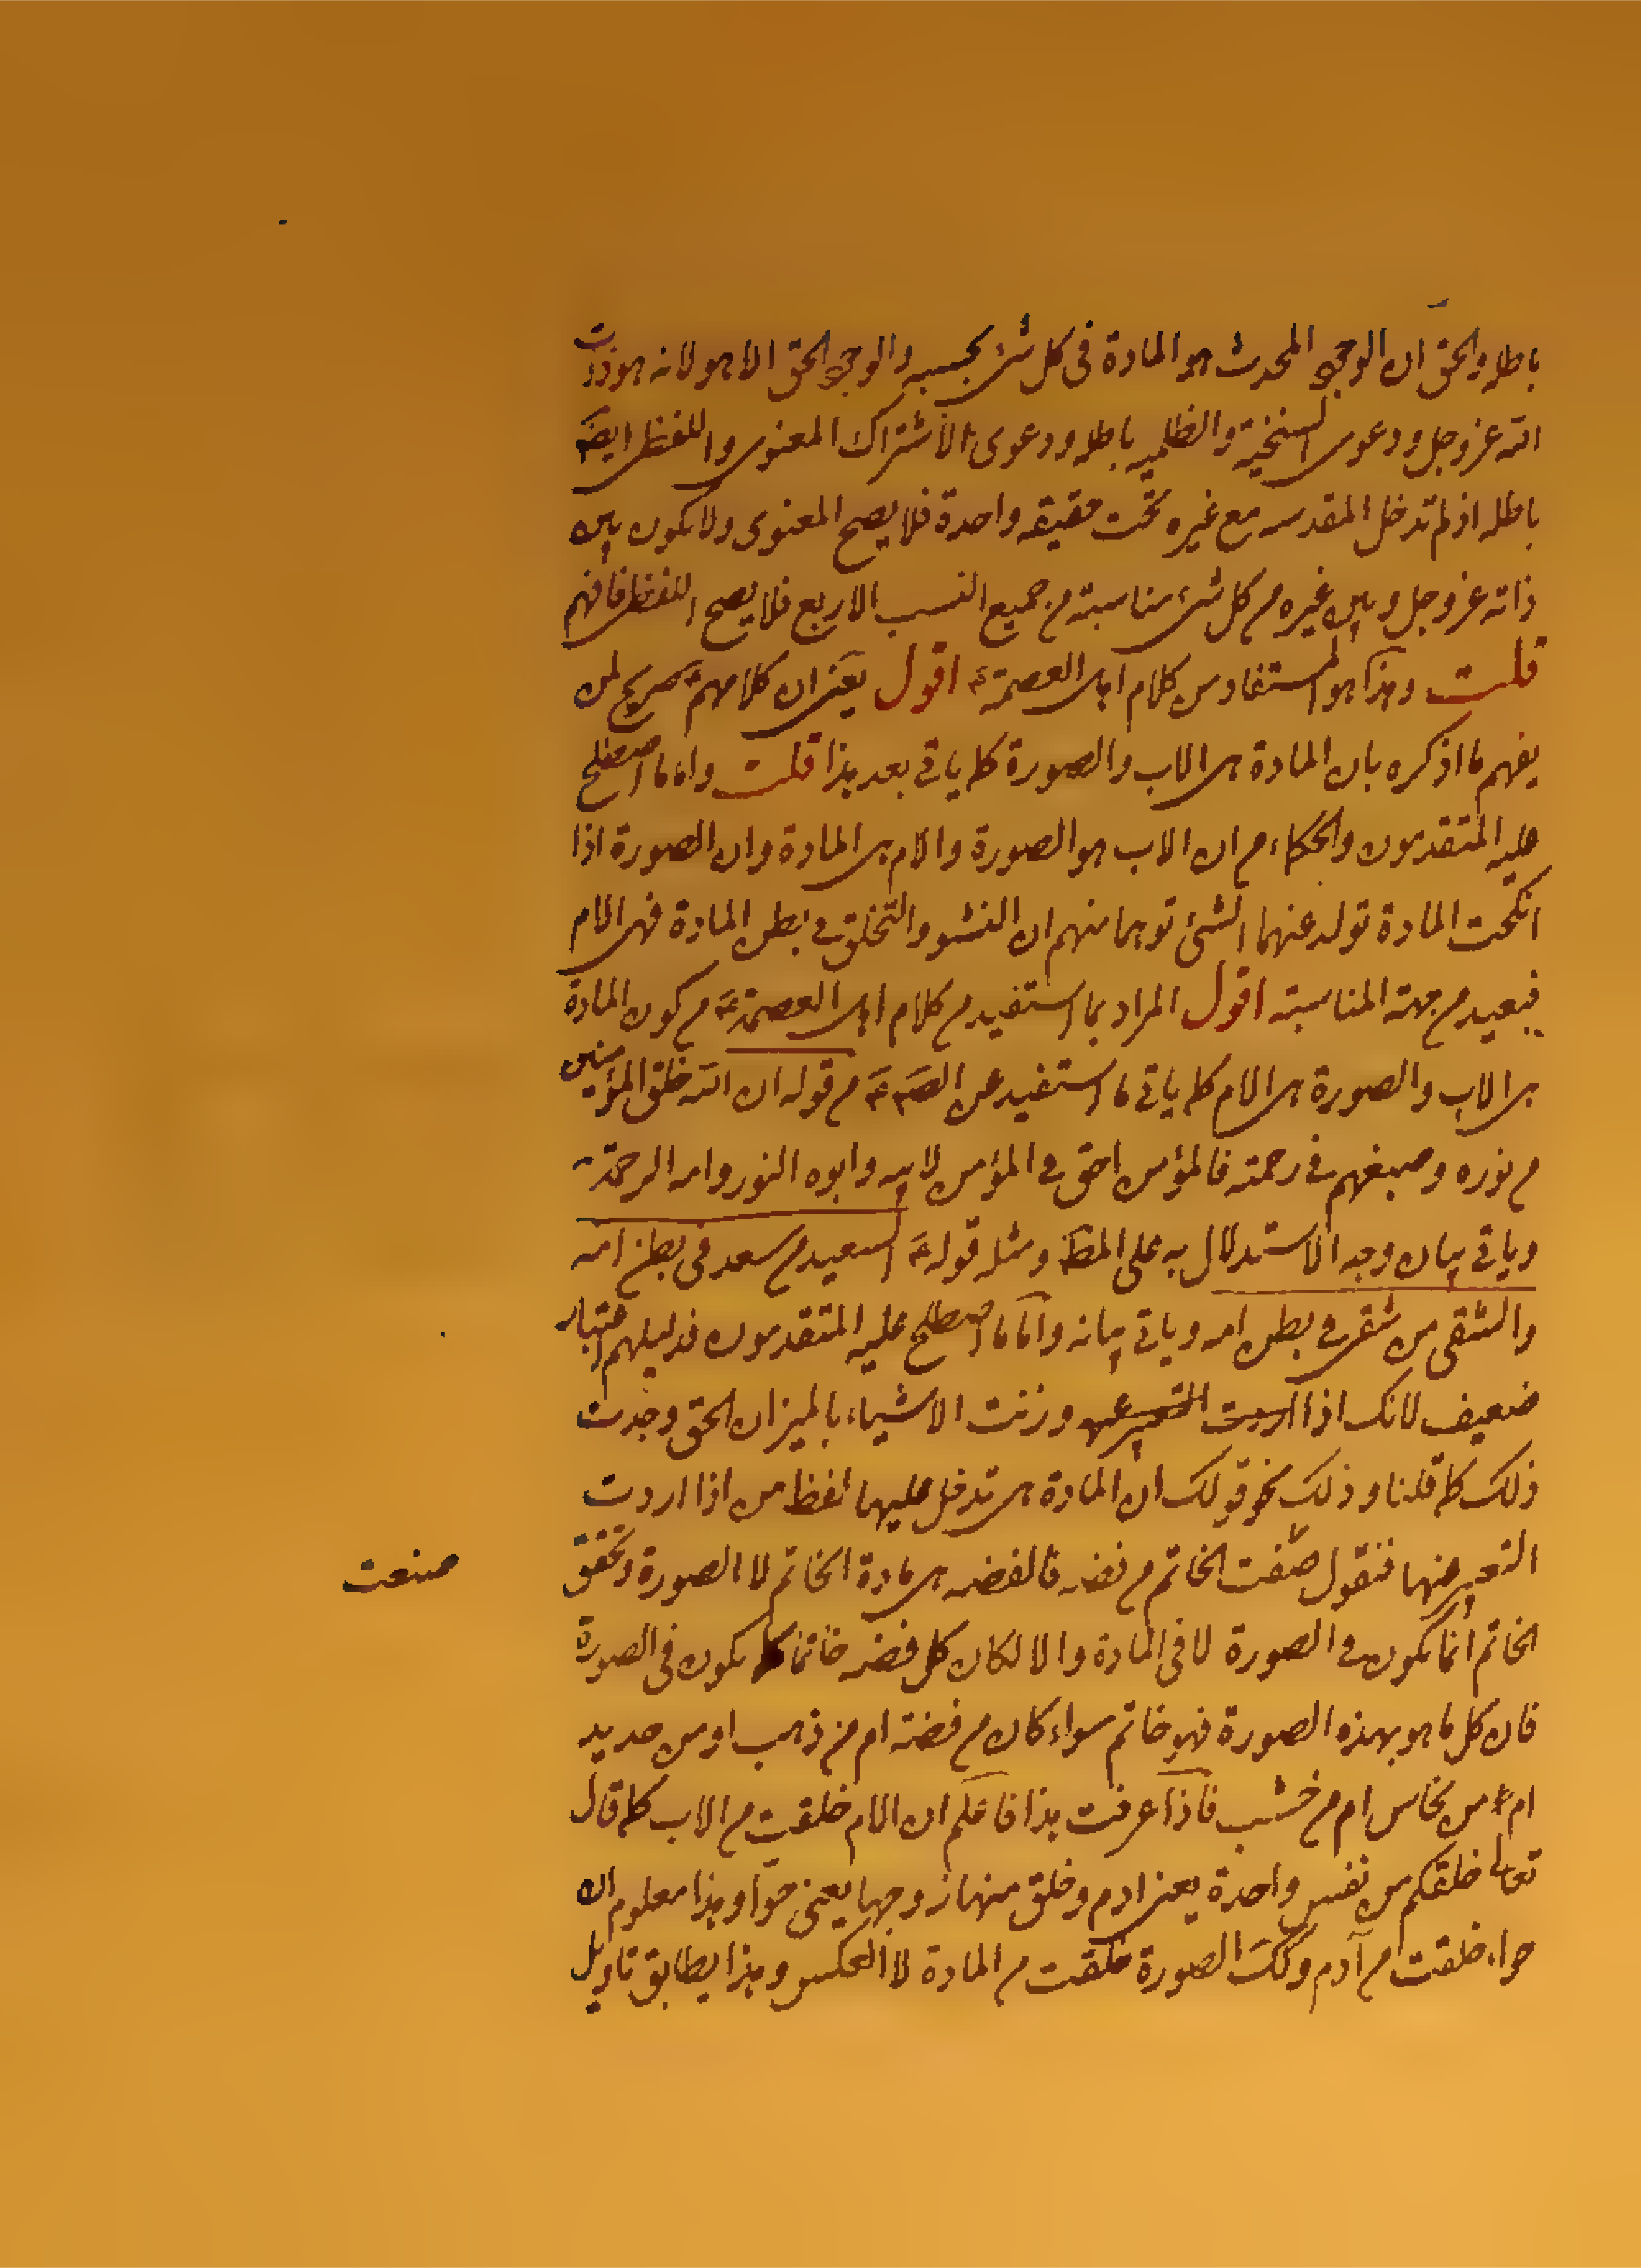 باطله والحق ان الوجود المحدث هو المادة فى كل شئ بحسبه والوجود الحق الا هو لانه هو ذات
الله عز وجل ودعوى السنخية والظلية باطله ودعوى الاشتراك المعنوى واللفظى ايضا
باطله اذ لم تدخل المقدسه مع غيره تحت حقيقه واحدة فلا يصح المعنوى ولا يكون بين
ذاته عز وجل وبين غيره من كل شئ مناسبة من جميع النسب الاربع فلا يصح اللفظى فافهم
قلت وهذا هو المستفاد من كلام اهل العصمة ع اقول يعنى ان كلامهم ع صريح لمن
يفهم ما اذكره بان المادة هى الاب والصورة كما ياتى بعد هذا قلت واما ما اصطلح
عليه المتقدمون والحكماء من ان الاب هو الصورة والام هى المادة وان الصورة اذا
انكحت المادة تولد عنهما الشئ توهما منهم ان النشو والتخلق فى بطن المادة فهى الام
فبعيد من جهة المناسبة اقول المراد بما استفيد من كلام اهل العصمة ع من كون المادة
هى الاب والصورة هى الام كما ياتى ما استفيد عن الص ع من قوله ان الله خلق المؤمنين
من نوره وصبغهم فى رحمته فالمؤمن اخو المؤمن لابيه وامه وابوه النور وامه الرحمة
وياتى بيان وجه الاستدلال به على المط ومثله قوله ع السعيد من سعد فى بطن امه
والشقى من شقى فى بطن امه وياتى بيانه واما ما اصطلح عليه المتقدمون فدليلهم اعتبار
ضعيف لانك اذا اردت التعبير عنها وزنت الاشياء بالميزان الحق وجدت
ذلك كما قلنا وذلك نحو قولك ان المادة هى تدخل عليها لفظ من اذا اردت
التعبير عنها فتقول صنعت الخاتم من فضه فالفضه هى مادة الخاتم لا الصورة وتحقق
الخاتم انما يكون فى الصورة لا فى المادة والا لكان كل فضه خاتما يكون فى الصورة
فان كل ما هو بهذه الصورة فهو خاتم سواء كان من فضة ام من ذهب او من حديد
ام من نحاس ام من خشب فاذا عرفت هذا فاعلم ان الام خلقت من الاب كما قال
تعالى خلقكم من نفس واحدة يعنى ادم وخلق منها زوجها يعنى حوآ وهذا معلوم ان
حواء خلقت من آدم وكك الصورة خلقت من المادة لا العكس وهذا يطابق تاويل
صنعت